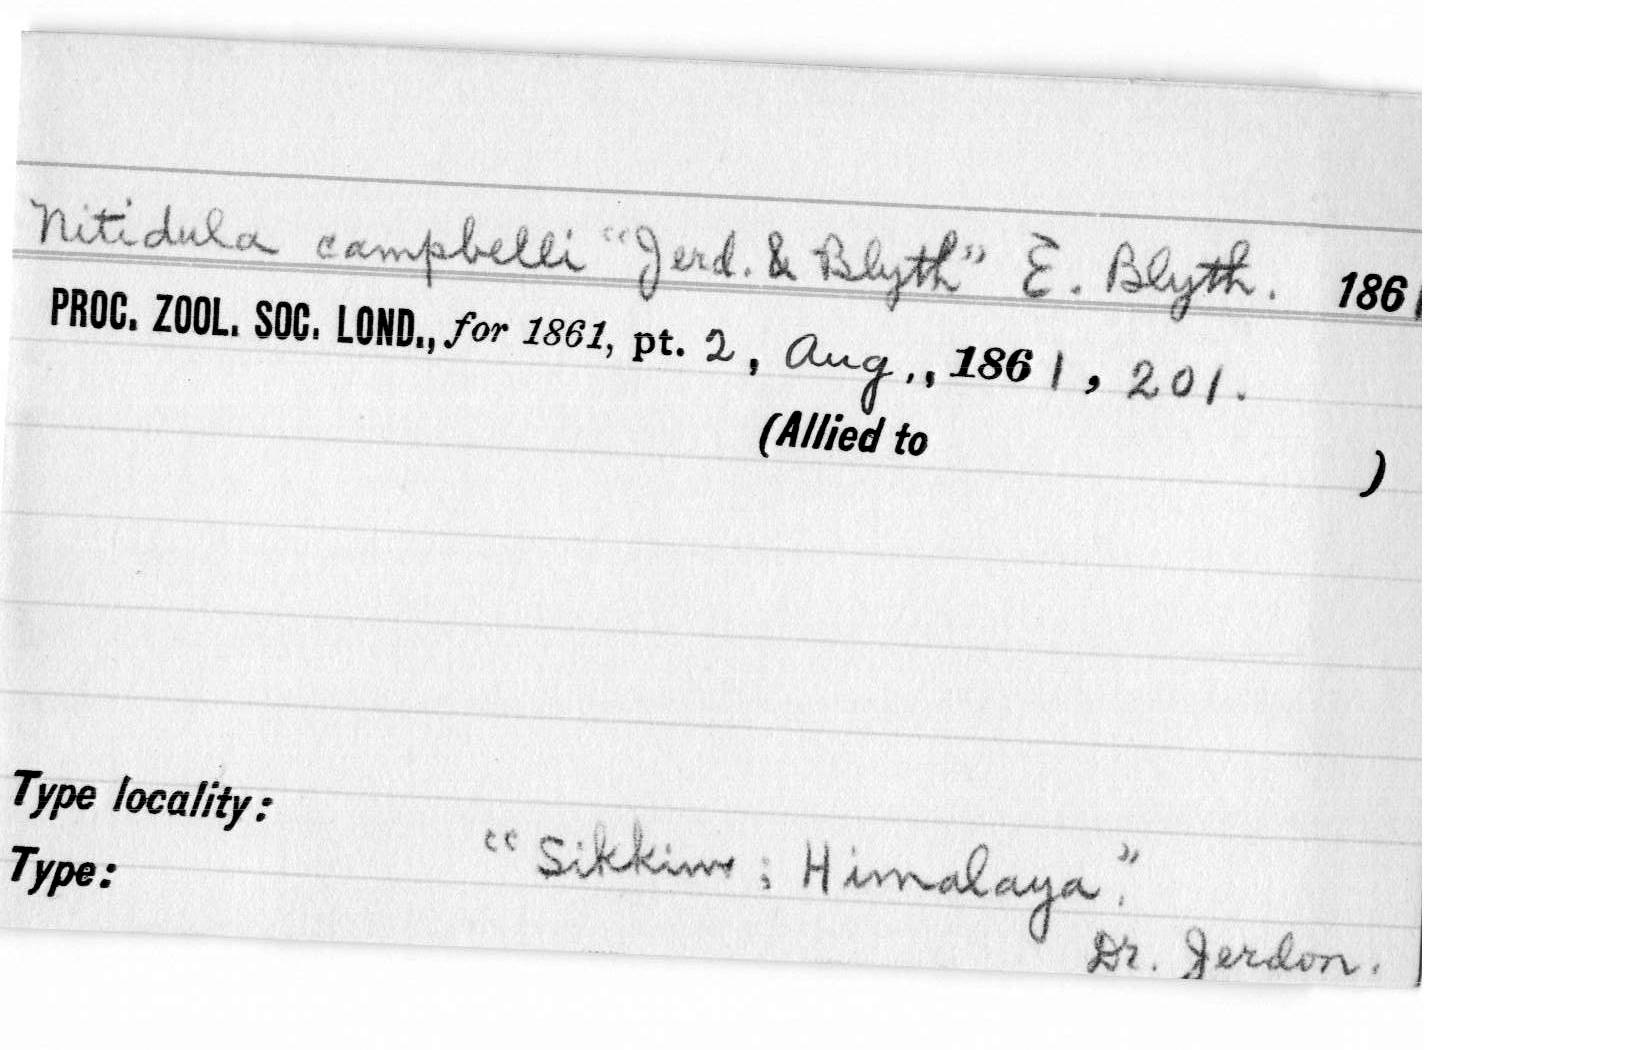 Nitidula campbelli "Jerd. & Blyth" E. Blyth. 1861
PROC. ZOOL. SOC. LOND., for 1861, pt. 2, Aug., 1861, 201.
(Allied to )
Type locality:
"Sikkim; Himalaya".
Type:
Dr. Jerdon.